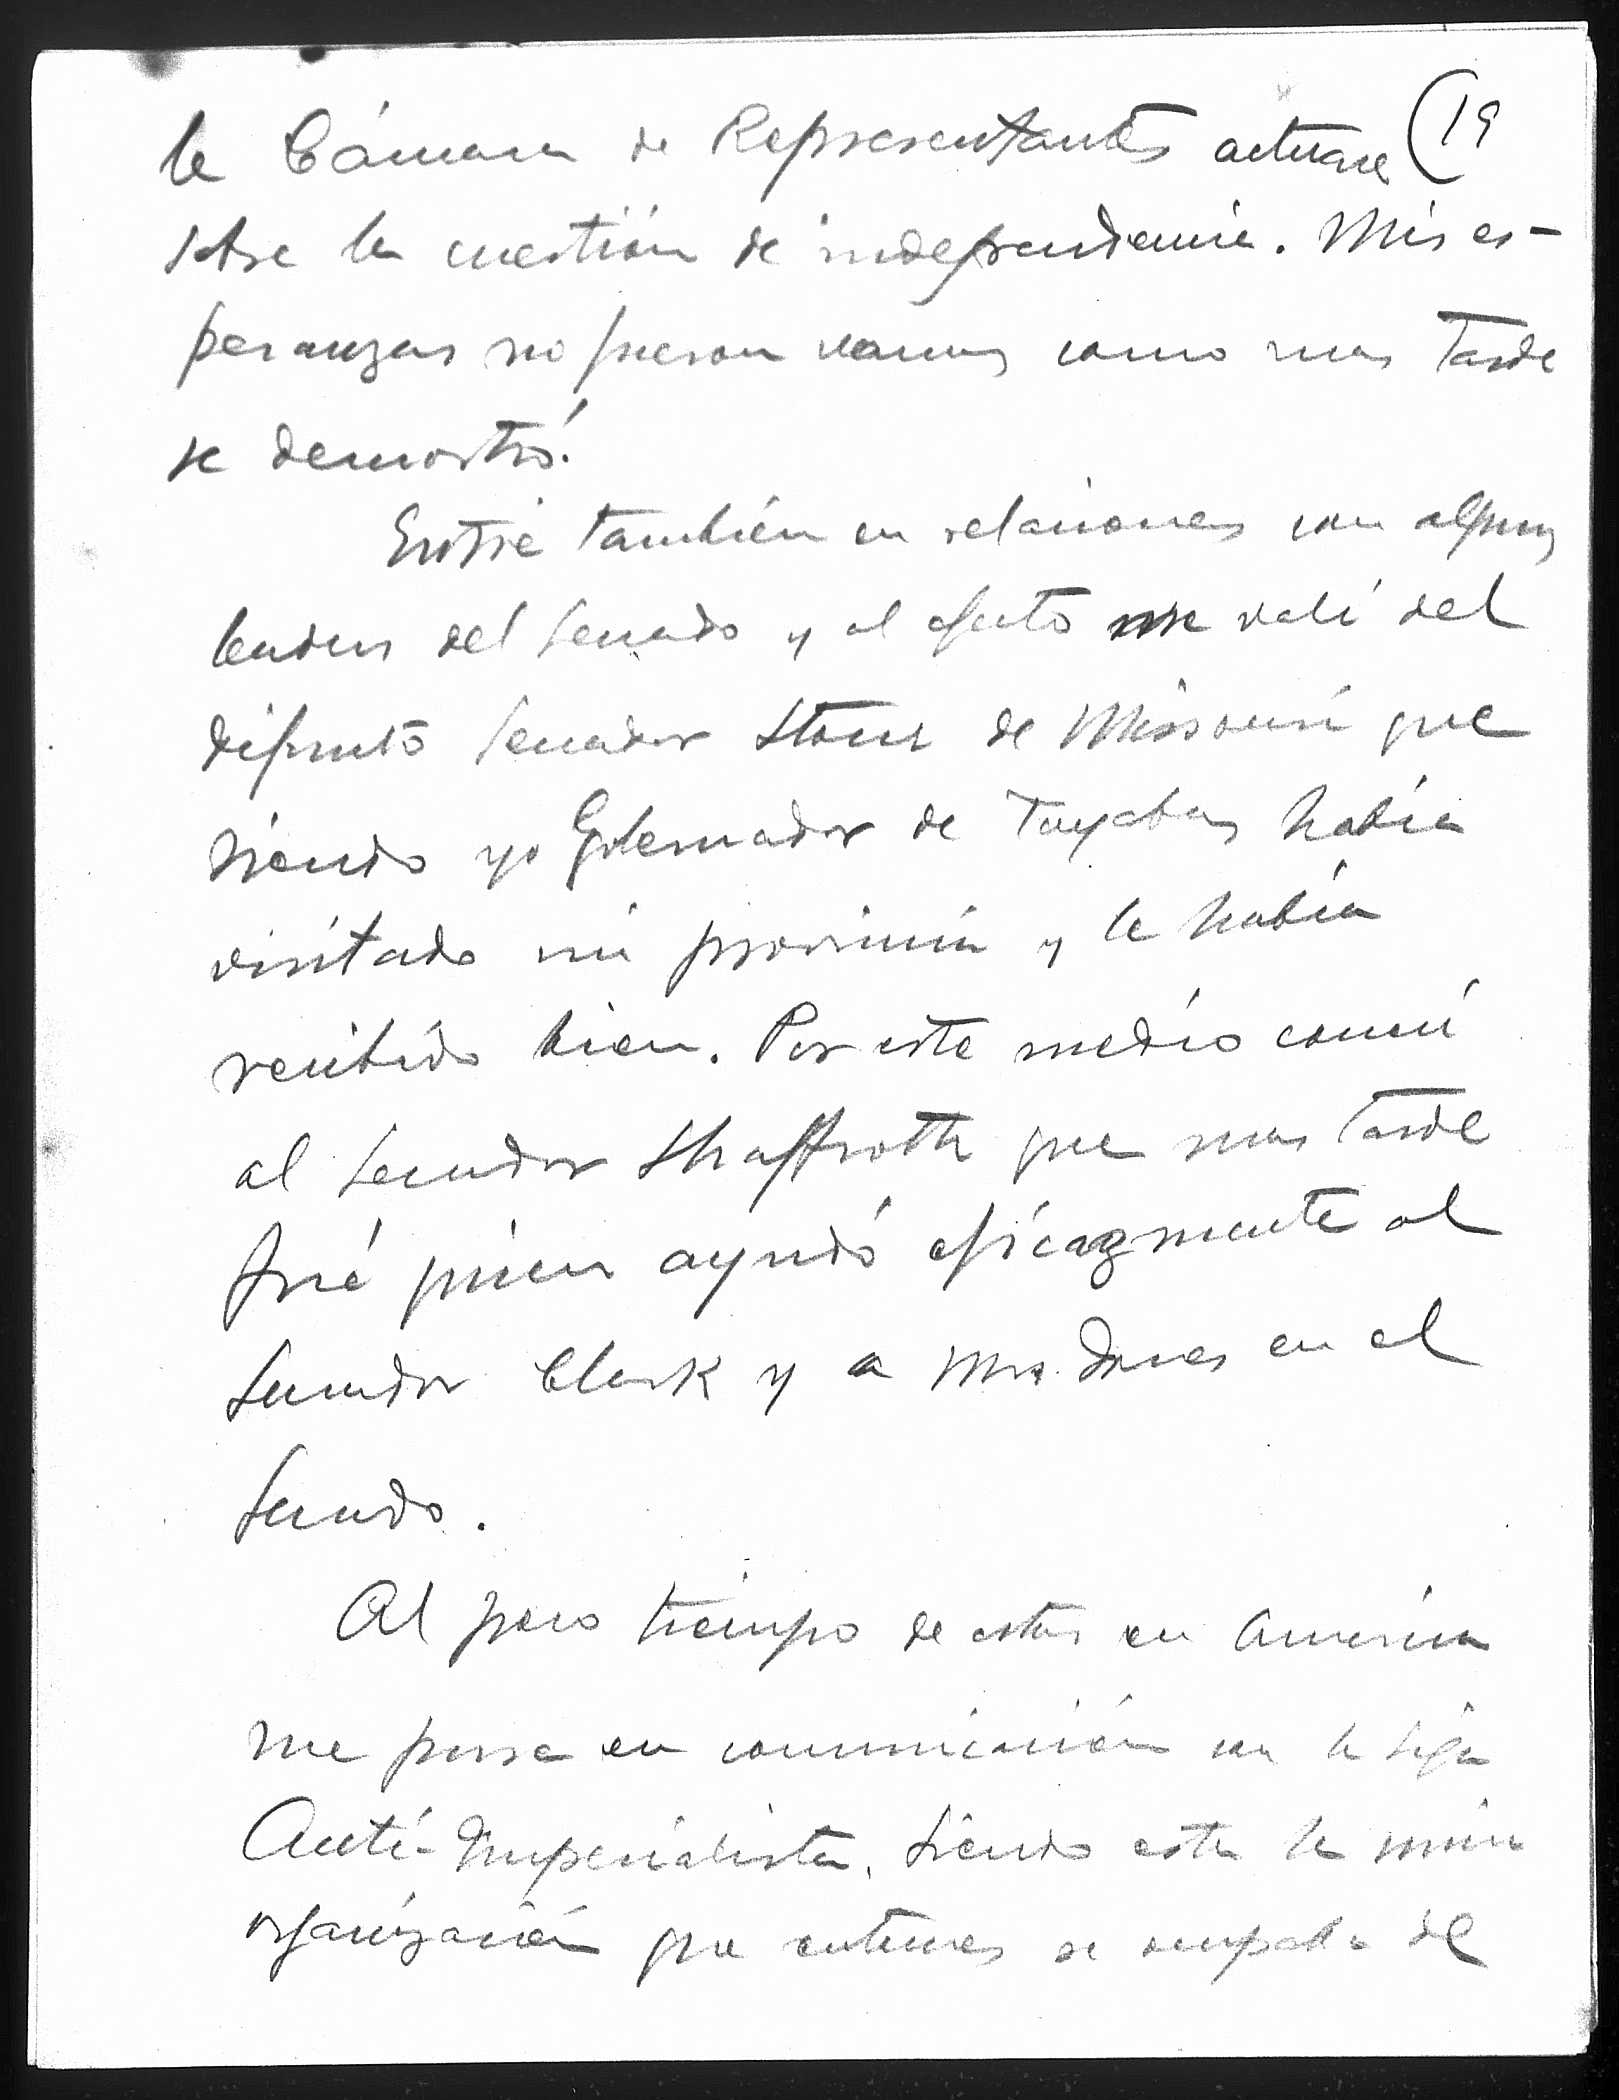 la Cámara de Representantes actuase (19
sobre la cuestión de independencia. Mis es-
peranzas no fueron vanas como mas tarde
se demostró.
Entré también en relaciones con algunos
leaders del Senado y al efecto me valí del
difunto Senador Stone de Missouri que
siendo yo Gobernador de Tayabas había
visitado mi provincia y le había
recibido bien. Por este medio conocí
al Senador Shaffroth que mas tarde
fué quien ayudó eficazmente al
Senador Clark y a Mr. Jones en el
Senado.
Al poco tiempo de estar en America
me puse en comunicación con la Liga
Anti-Imperialista, siendo esta la única
organización que entonces se ocupaba del